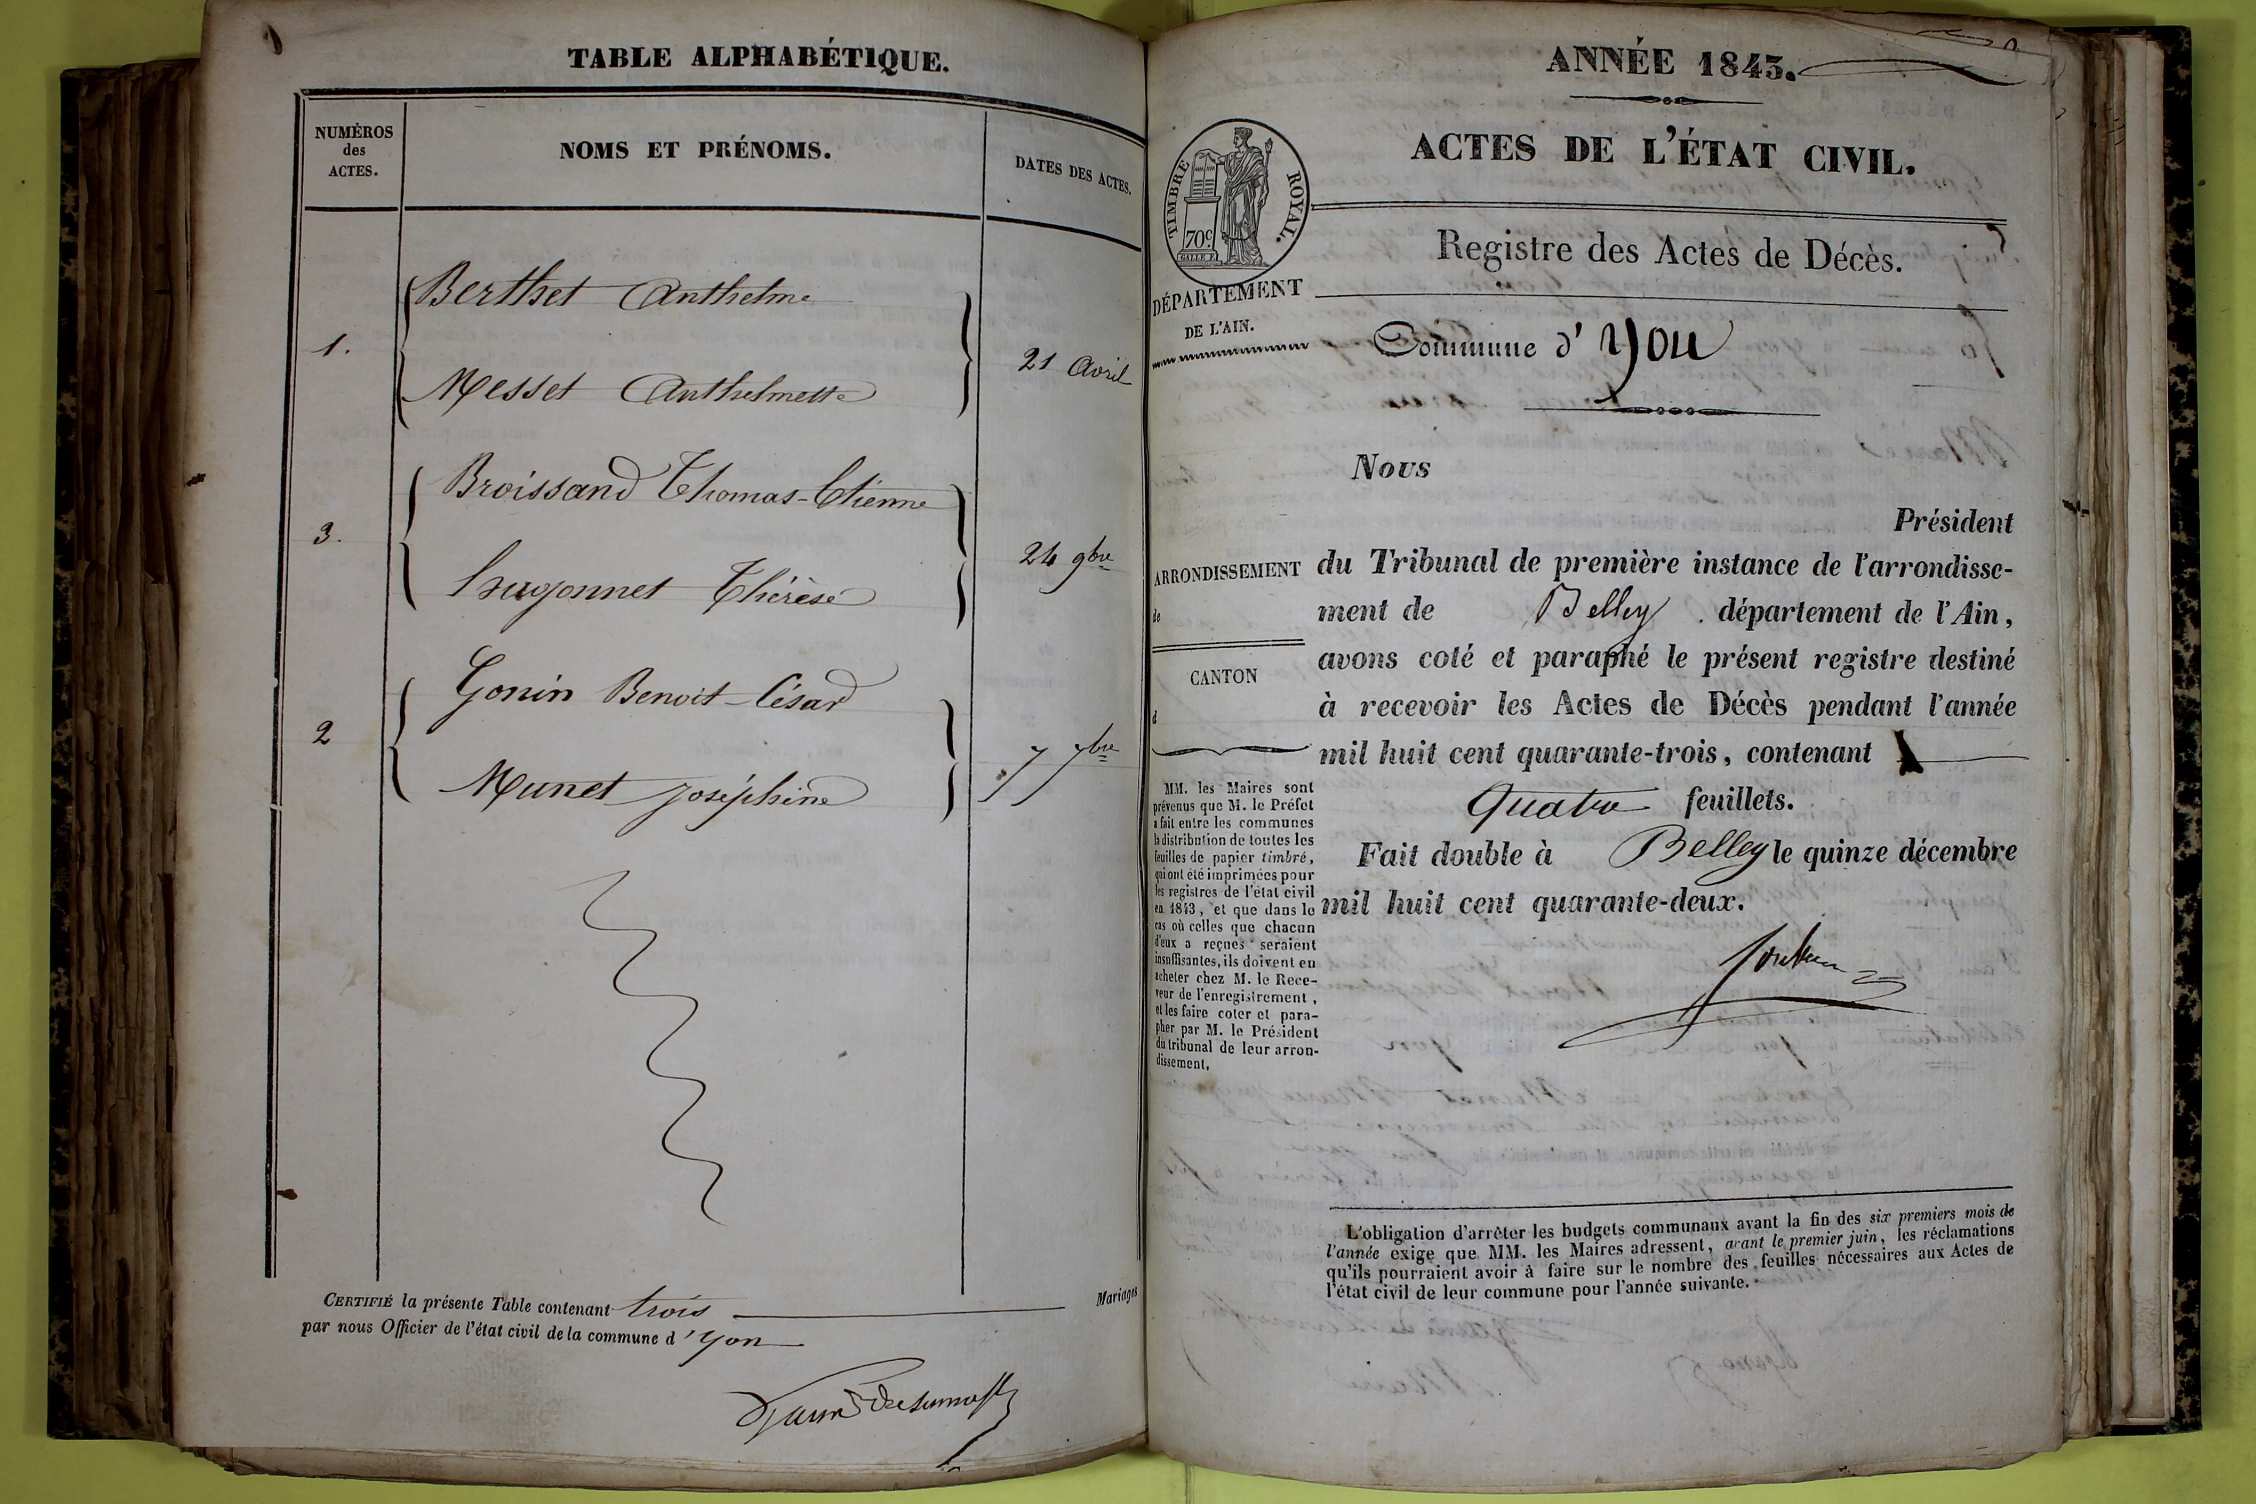 TABLE ALPHABÉTIQUE.
NUMÉROS
des
ACTES.
NOMS ET PRÉNOMS.
DATES DES ACTES.
Berthet Anthelme
1.
21 Avril
Messet Anthelmette
Broissand Thomas-Etienne
3.
24 9bre
hugonnet Thérèse
Gonin Benoit-César
2
7 7bre
Munet Joséphine
CERTIFIÉ la présente Table contenant trois Mariages
par nous Officier de l'état civil de la commune d' Yon
ANNÉE 1843.
ACTES DE L'ÉTAT CIVIL.
TIMBRE ROYAL.
70c
Registre des Actes de Décès.
DÉPARTEMENT
DE L'AIN.
Commune d' Yon
Nous
Président
ARRONDISSEMENT
de
CANTON
d
du Tribunal de première instance de l'arrondisse-
ment de Belley . département de l'Ain,
avons coté et paraphé le présent registre destiné
à recevoir les Actes de Décès pendant l'année
mil huit cent quarante-trois, contenant
quatre feuillets.
Fait double à Belley le quinze décembre
mil huit cent quarante-deux.
MM. les Maires sont
prévenus que M. le Préfet
a fait entre les communes
la distribution de toutes les
feuilles de papier timbré,
qui ont été imprimées pour
les registres de l'état civil
en 1843, et que dans le
cas où celles que chacun
d'eux a reçues seraient
insuffisantes, ils doivent en
acheter chez M. le Rece-
veur de l'enregistrement,
et les faire coter et para-
pher par M. le Président
du tribunal de leur arron-
dissement,
L'obligation d'arrêter les budgets communaux avant la fin des six premiers mois de
l'année exige que MM. les Maires adressent, avant le premier juin, les réclamations
qu'ils pourraient avoir à faire sur le nombre des feuilles nécessaires aux Actes de
l'état civil de leur commune pour l'année suivante.